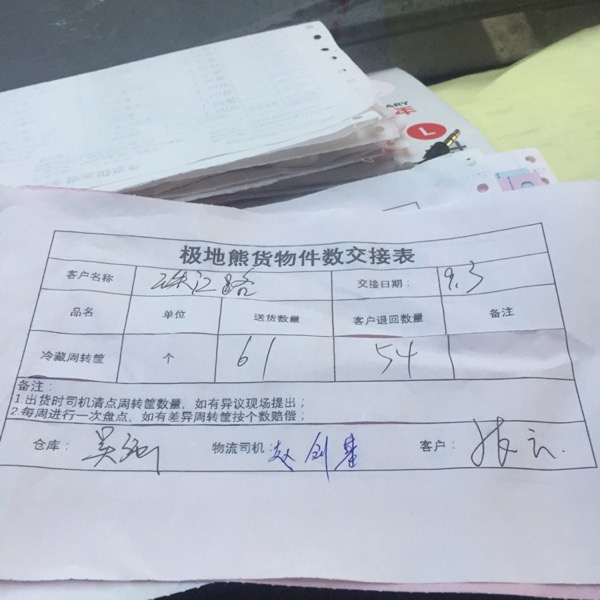 ARY
L
极地熊货物件数交接表
客户名称 珠江路 交接日期: 9.3
品名 单位 送货数量 客户退回数量 备注
冷藏周转筐 个 61 54
备注:
1.出货时司机清点周转筐数量，如有异议现场提出;
2.每周进行一次盘点，如有差异周转筐按个数赔偿;
仓库: 吴 物流司机: 赵创基 客户: